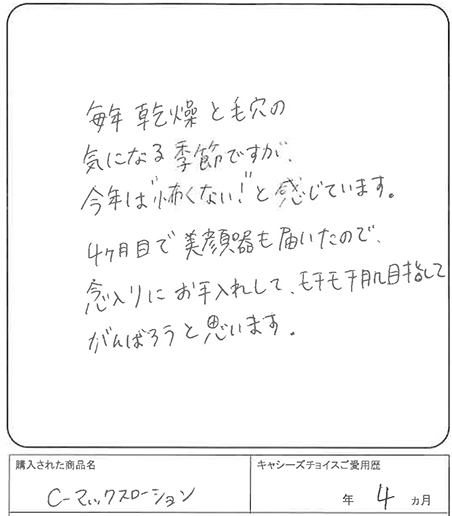 毎年 乾燥と毛穴の
気になる季節ですが、
今年は"怖くない!"と感じています。
4ヶ月目で美顔器も届いたので、
念入りにお手入れして、モチモチ肌目指して
がんばろうと思います。
購入された商品名
キャシーズチョイスご愛用歴
C-マックスローション
年 4 ヵ月